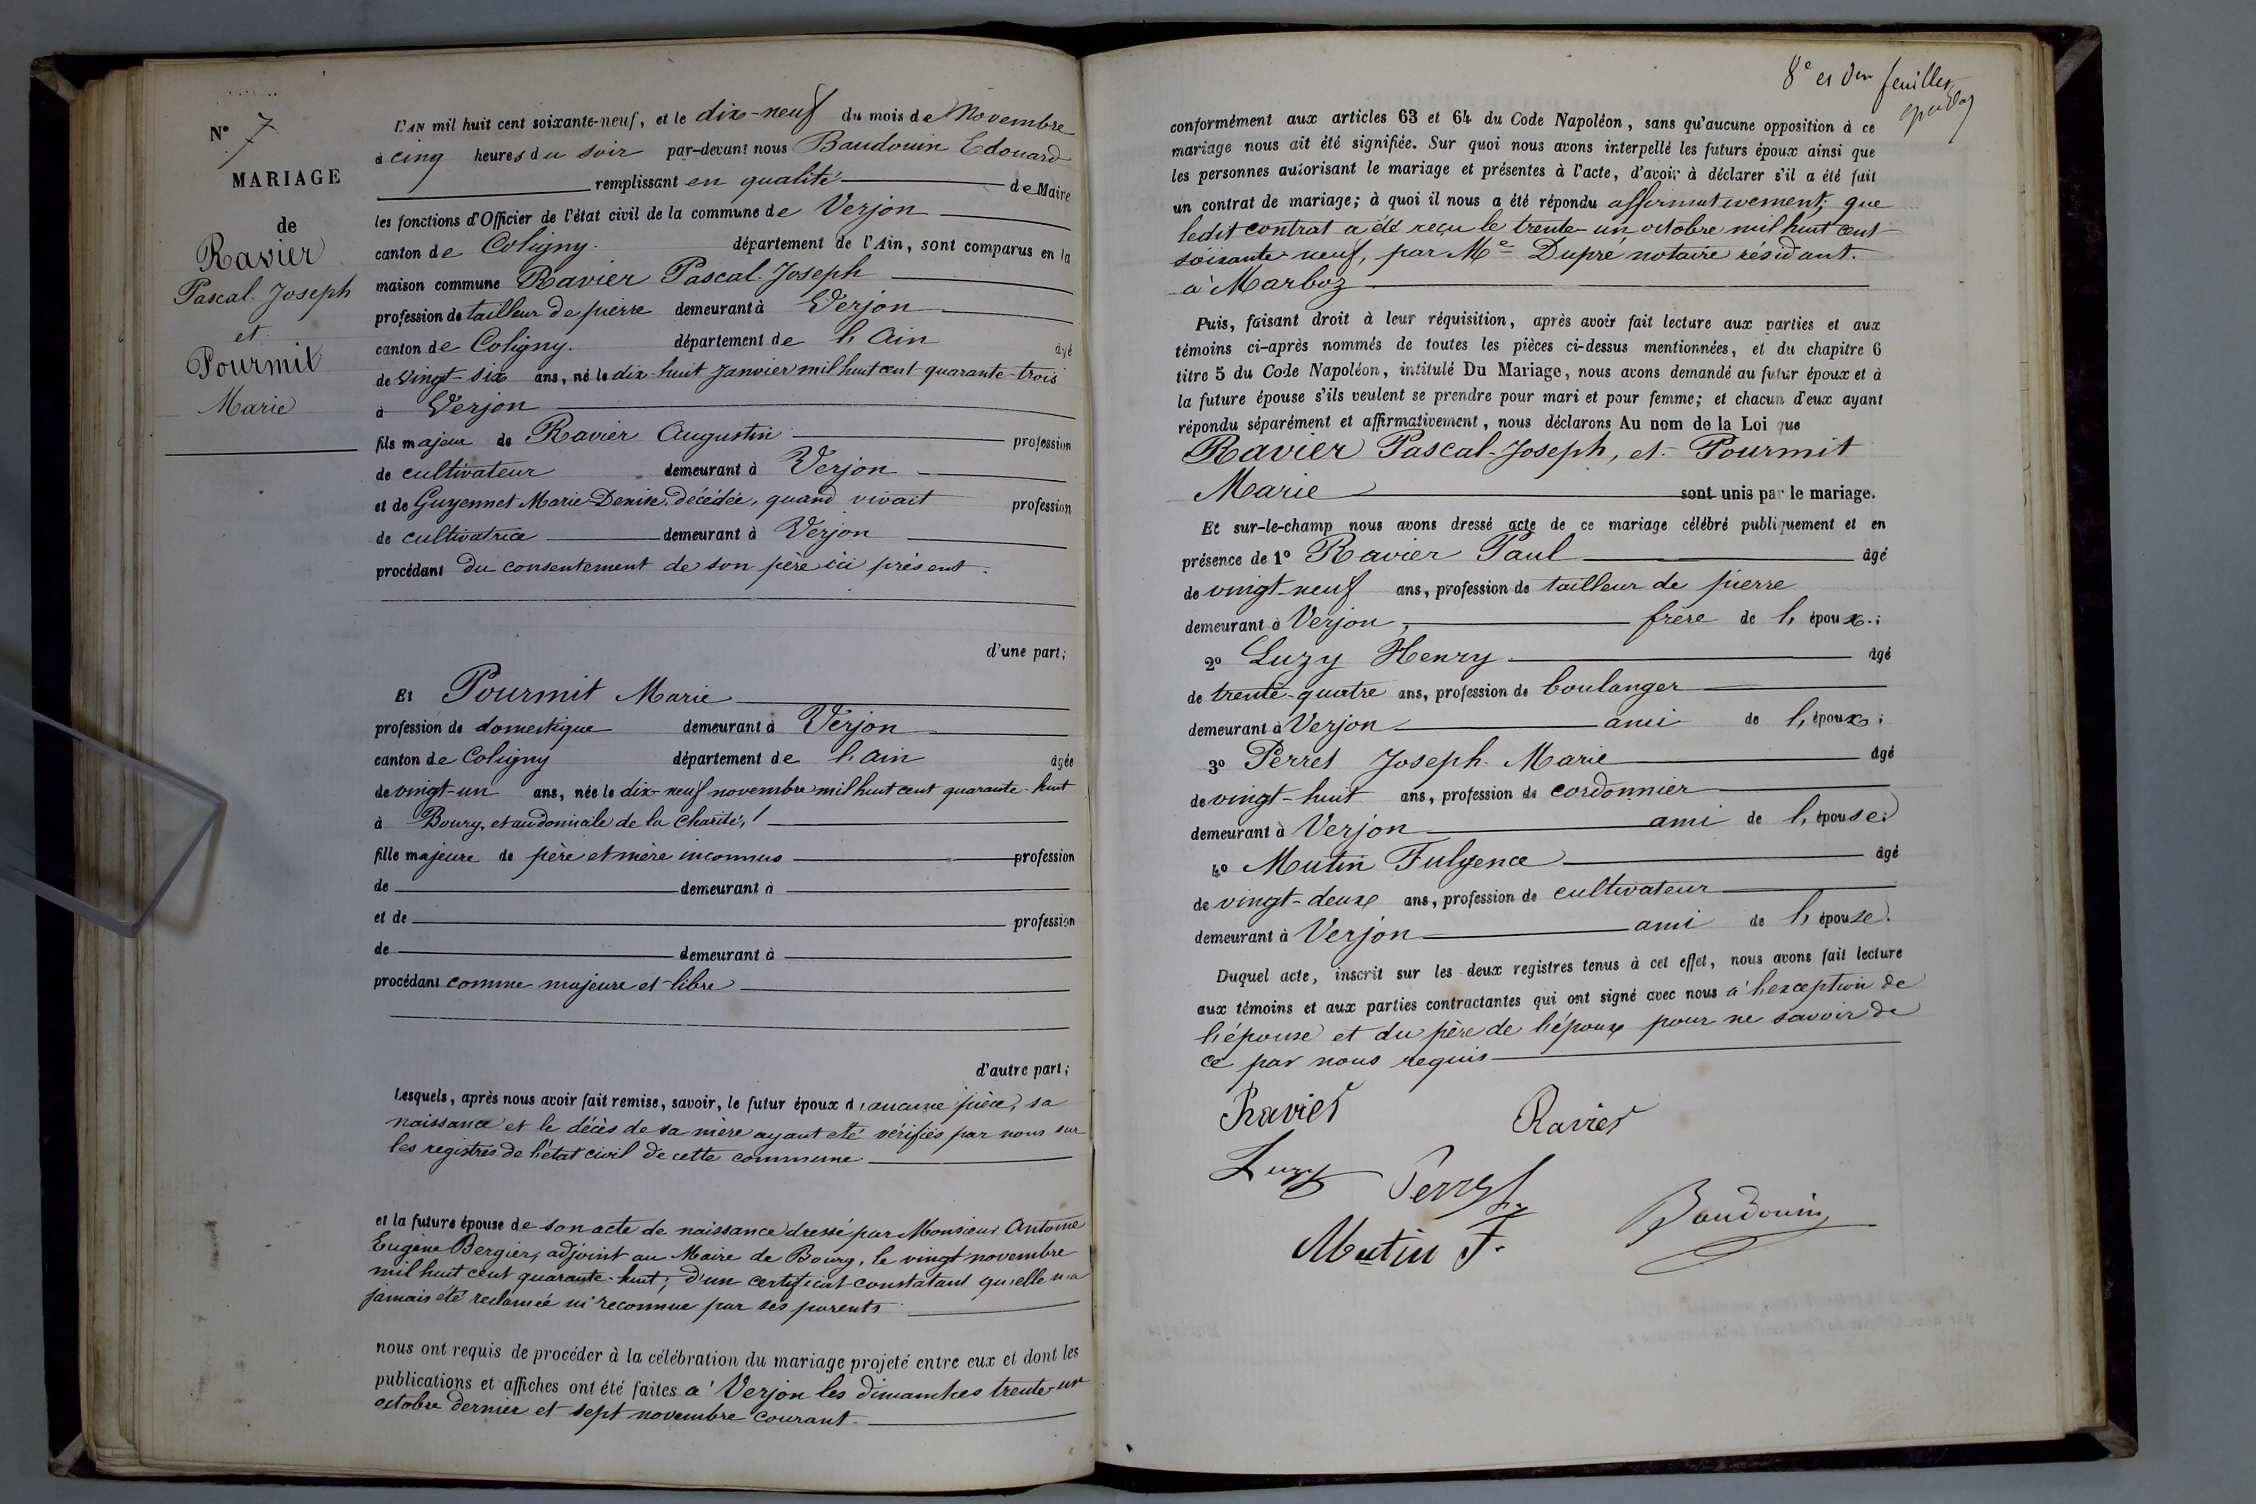 N° 7
MARIAGE
de
Ravier
Pascal-Joseph
et
Pourmit
Marie
L'AN mil huit cent soixante-neuf, et le dix-neuf du mois de Novembre
à cinq heures du soir par-devant nous Baudouin Edouard
remplissant en qualité de Maire
les fonctions d'Officier de l'état civil de la commune de Verjon
canton de Coligny. département de l'Ain, sont comparus en la
maison commune Ravier Pascal-Joseph
profession de tailleur de pierre demeurant à Verjon
canton de Coligny. département de l'Ain âgé
de vingt-six ans, né le dix-huit Janvier mil huit cent quarante-trois
à Verjon
fils majeur de Ravier Augustin profession
de cultivateur demeurant à Verjon
et de Guyennet Marie-Denise, décédée, quand vivait profession
de cultivatrice demeurant à Verjon
procédant du consentement de son père ici présent.
d'une part;
Et Pourmit Marie
profession de domestique demeurant à Verjon
canton de Coligny département de l'ain âgée
de vingt-un ans, née le dix-neuf novembre mil huit cent quarante-huit
à Bourg, et au domicile de la Charité,
fille majeure de père et mère inconnus profession
de demeurant à
et de profession
de demeurant à
procédant comme majeure et libre
d'autre part;
Lesquels, après nous avoir fait remise, savoir, le futur époux d'aucune pièce, sa
naissance et le décès de sa mère ayant été vérifiés par nous sur
les registres de l'état civil de cette commune
et la future épouse de son acte de naissance dressé par Monsieur Antoine
Eugène Bergier, adjoint au Maire de Bourg, le vingt novembre
mil huit cent quarante-huit; d'un certificat constatant qu'elle n'a
jamais été reclamée ni reconnue par ses parents
nous ont requis de procéder à la célébration du mariage projeté entre eux et dont les
publications et affiches ont été faites à Verjon les dimanches trente-un
octobre dernier et sept novembre courant.
8e et feuillet
conformément aux articles 63 et 64 du Code Napoléon, sans qu'aucune opposition à ce
mariage nous ait été signifiée. Sur quoi nous avons interpellé les futurs époux ainsi que
les personnes autorisant le mariage et présentes à l'acte, d'avoir à déclarer s'il a été fait
un contrat de mariage; à quoi il nous a été répondu affirmativement; que
ledit contrat a été reçu le trente-un octobre mil huit cent
soixante-neuf, par Me Dupré notaire résidant.
à Marboz
Puis, faisant droit à leur réquisition, après avoir fait lecture aux parties et aux
témoins ci-après nommés de toutes les pièces ci-dessus mentionnées, et du chapitre 6
titre 5 du Code Napoléon, intitulé Du Mariage, nous avons demandé au futur époux et à
la future épouse s'ils veulent se prendre pour mari et pour femme; et chacun d'eux ayant
répondu séparément et affirmativement, nous déclarons Au nom de la Loi que
Ravier Pascal-Joseph, et Pourmit
Marie sont unis par le mariage.
Et sur-le-champ nous avons dressé acte de ce mariage célébré publiquement et en
présence de 1° Ravier Paul âgé
de vingt-neuf ans, profession de tailleur de pierre
demeurant à Verjon, frère de l'époux.;
2° Luzy Henry âgé
de trente-quatre ans, profession de boulanger
demeurant à Verjon ami de l'époux;
3° Perret Joseph-Marie âgé
de vingt-huit ans, profession de cordonnier
demeurant à Verjon ami de l'épouse;
4° Mutin Fulgence âgé
de vingt-deux ans, profession de cultivateur
demeurant à Verjon ami de l'épouse.
Duquel acte, inscrit sur les deux registres tenus à cet effet, nous avons fait lecture
aux témoins et aux parties contractantes qui ont signé avec nous à l'exception de
l'épouse et du père de l'époux pour ne savoir de
ce par nous requis
Ravier Ravier
Luzy Perret
Baudouin
Mutin F.